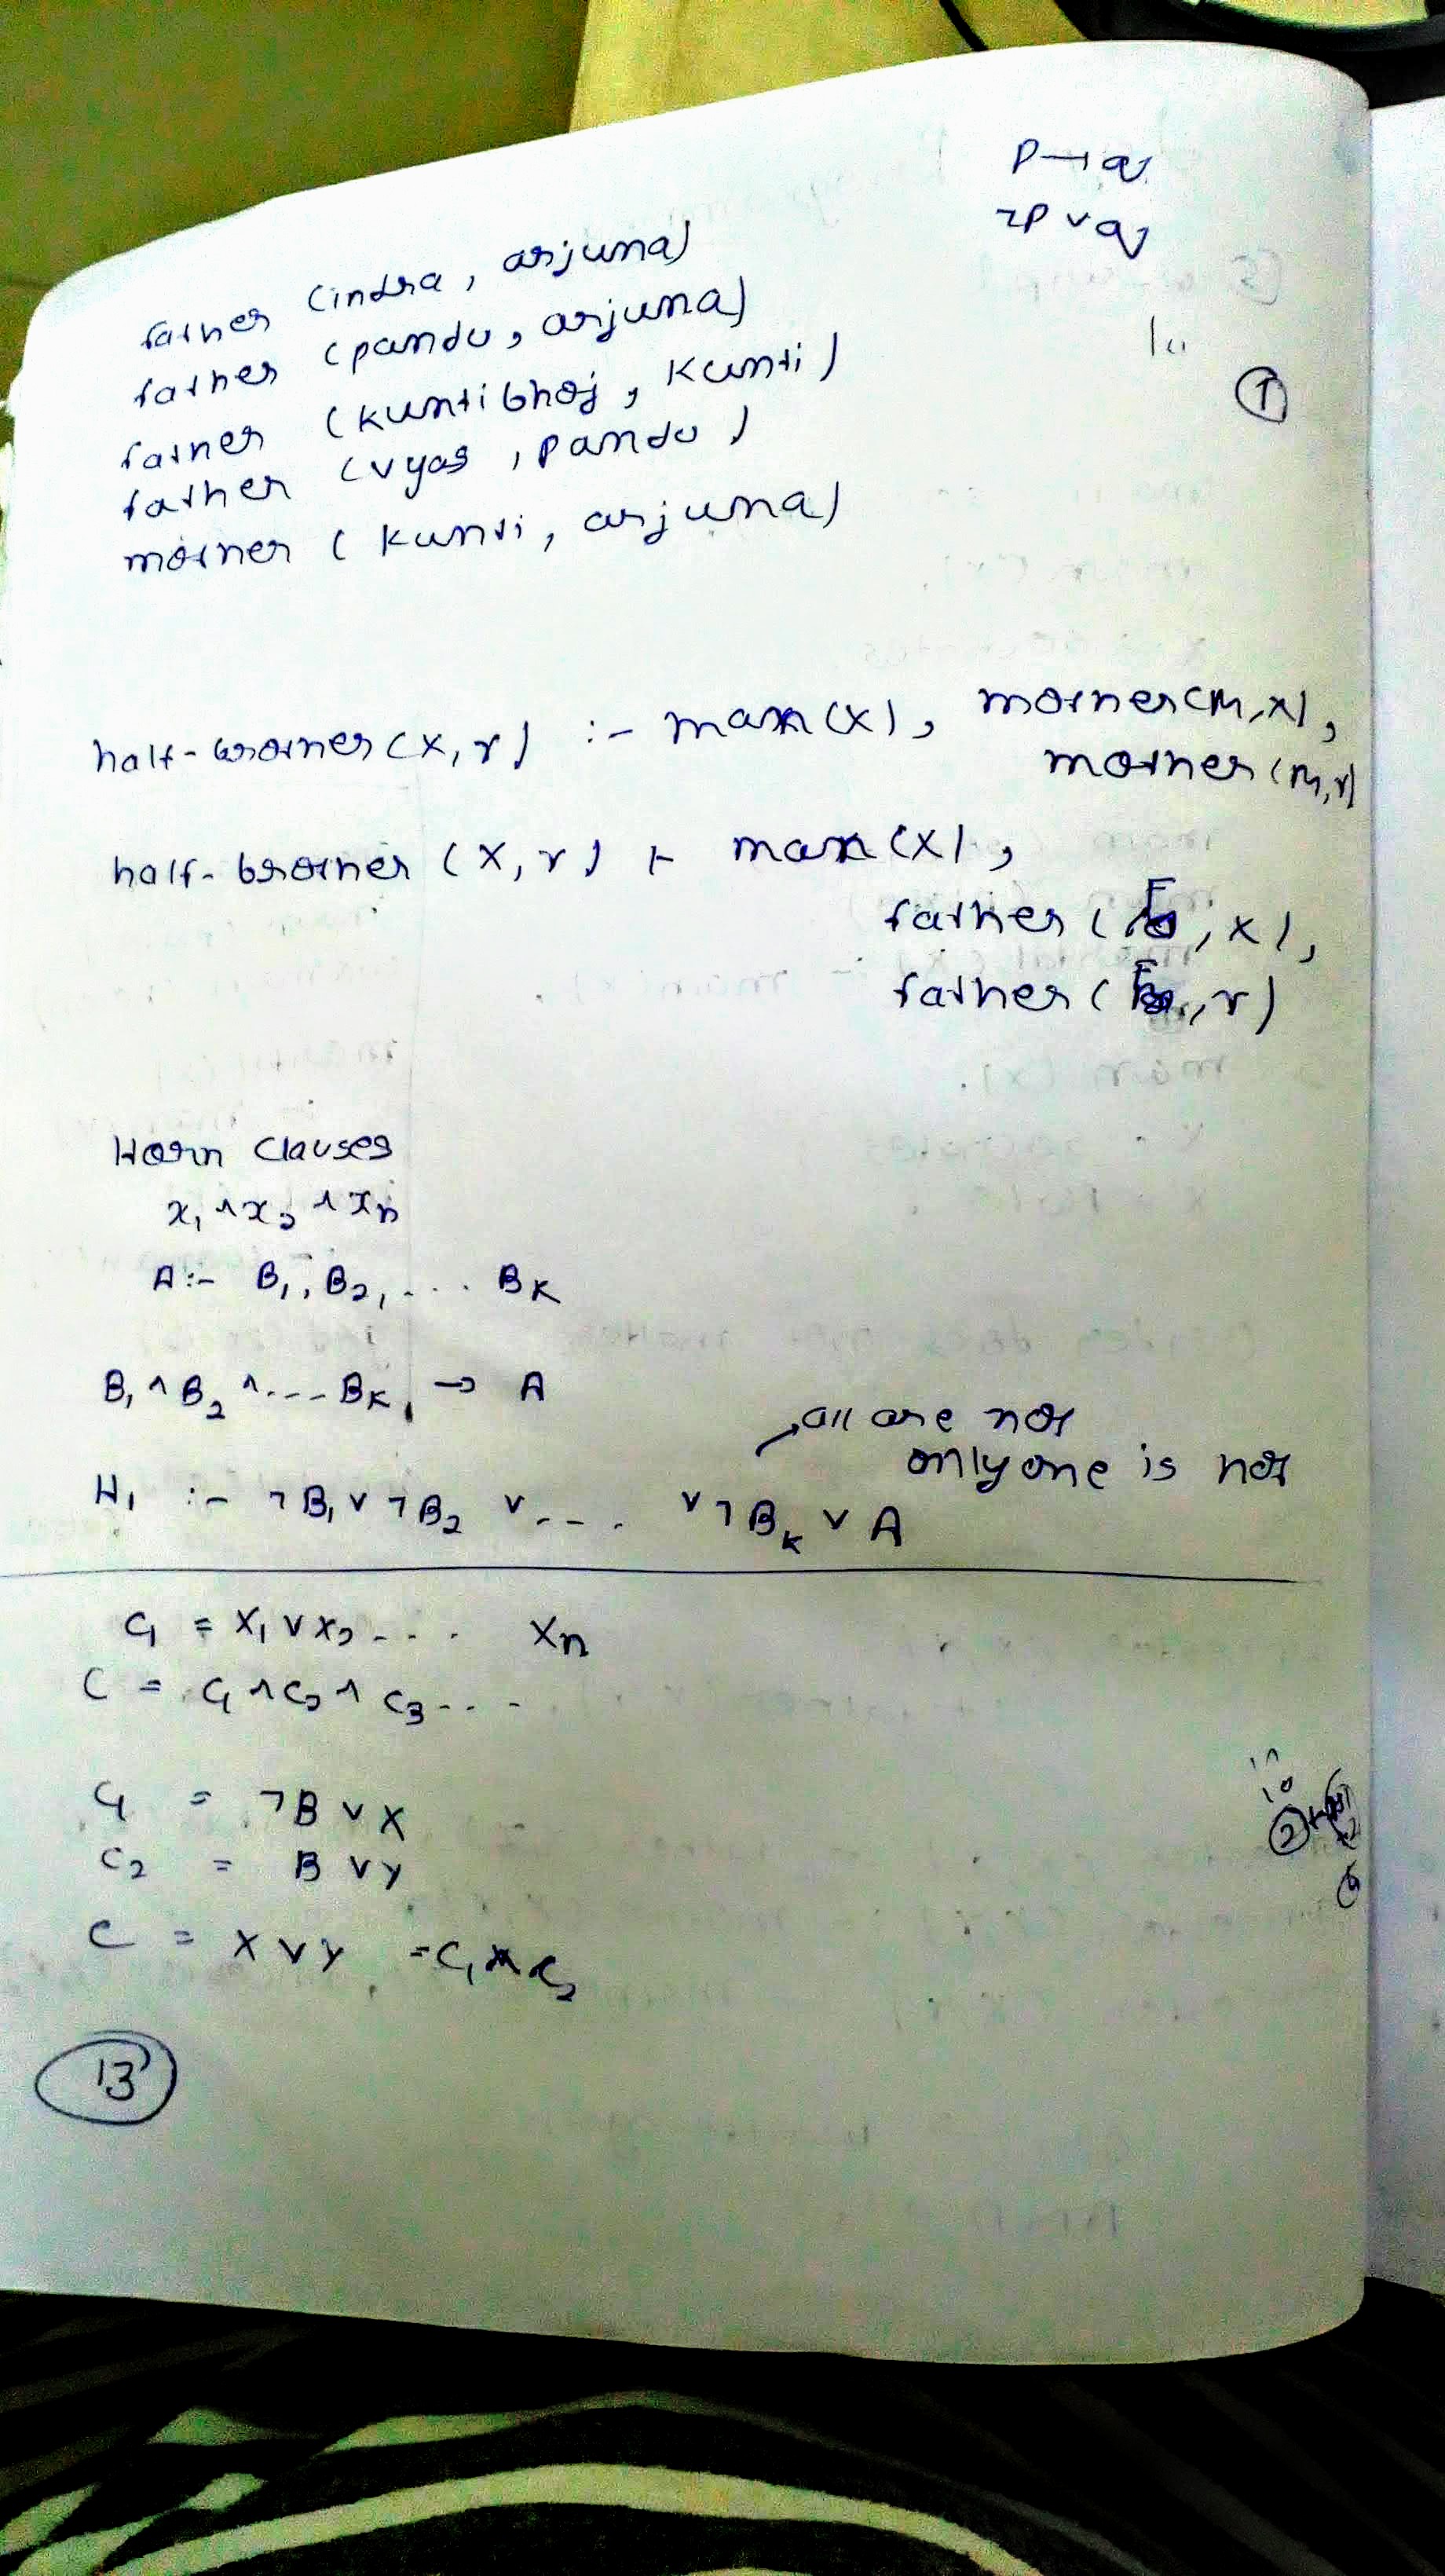 P → q
¬P ∨ q
father (indra, arjuna)
father (pandu, arjuna)
father (kuntibhoj, kunti)
father (vyas, pandu)
mother (kunti, arjuna)
1
half-brother(X, Y) :- man(X), mother(M,X),
mother(M,Y)
half-brother (X, Y) :- man(X),
father (F, X),
father (F, Y)
Horn Clauses
x₁ ^ x₂ ^ xₙ
A :- B₁, B₂, .... BK
B₁ ^ B₂ ^ .... BK → A
all are not
only one is not
H₁ :- ¬B₁ ∨ ¬B₂ ∨ .... ∨ ¬Bk ∨ A
C₁ = X₁ ∨ X₂ .... Xn
C = C₁ ^ C₂ ^ C₃ ....
C₁ = ¬B ∨ X
C₂ = B ∨ Y
C = X ∨ Y = C₁ ^ C₂
13